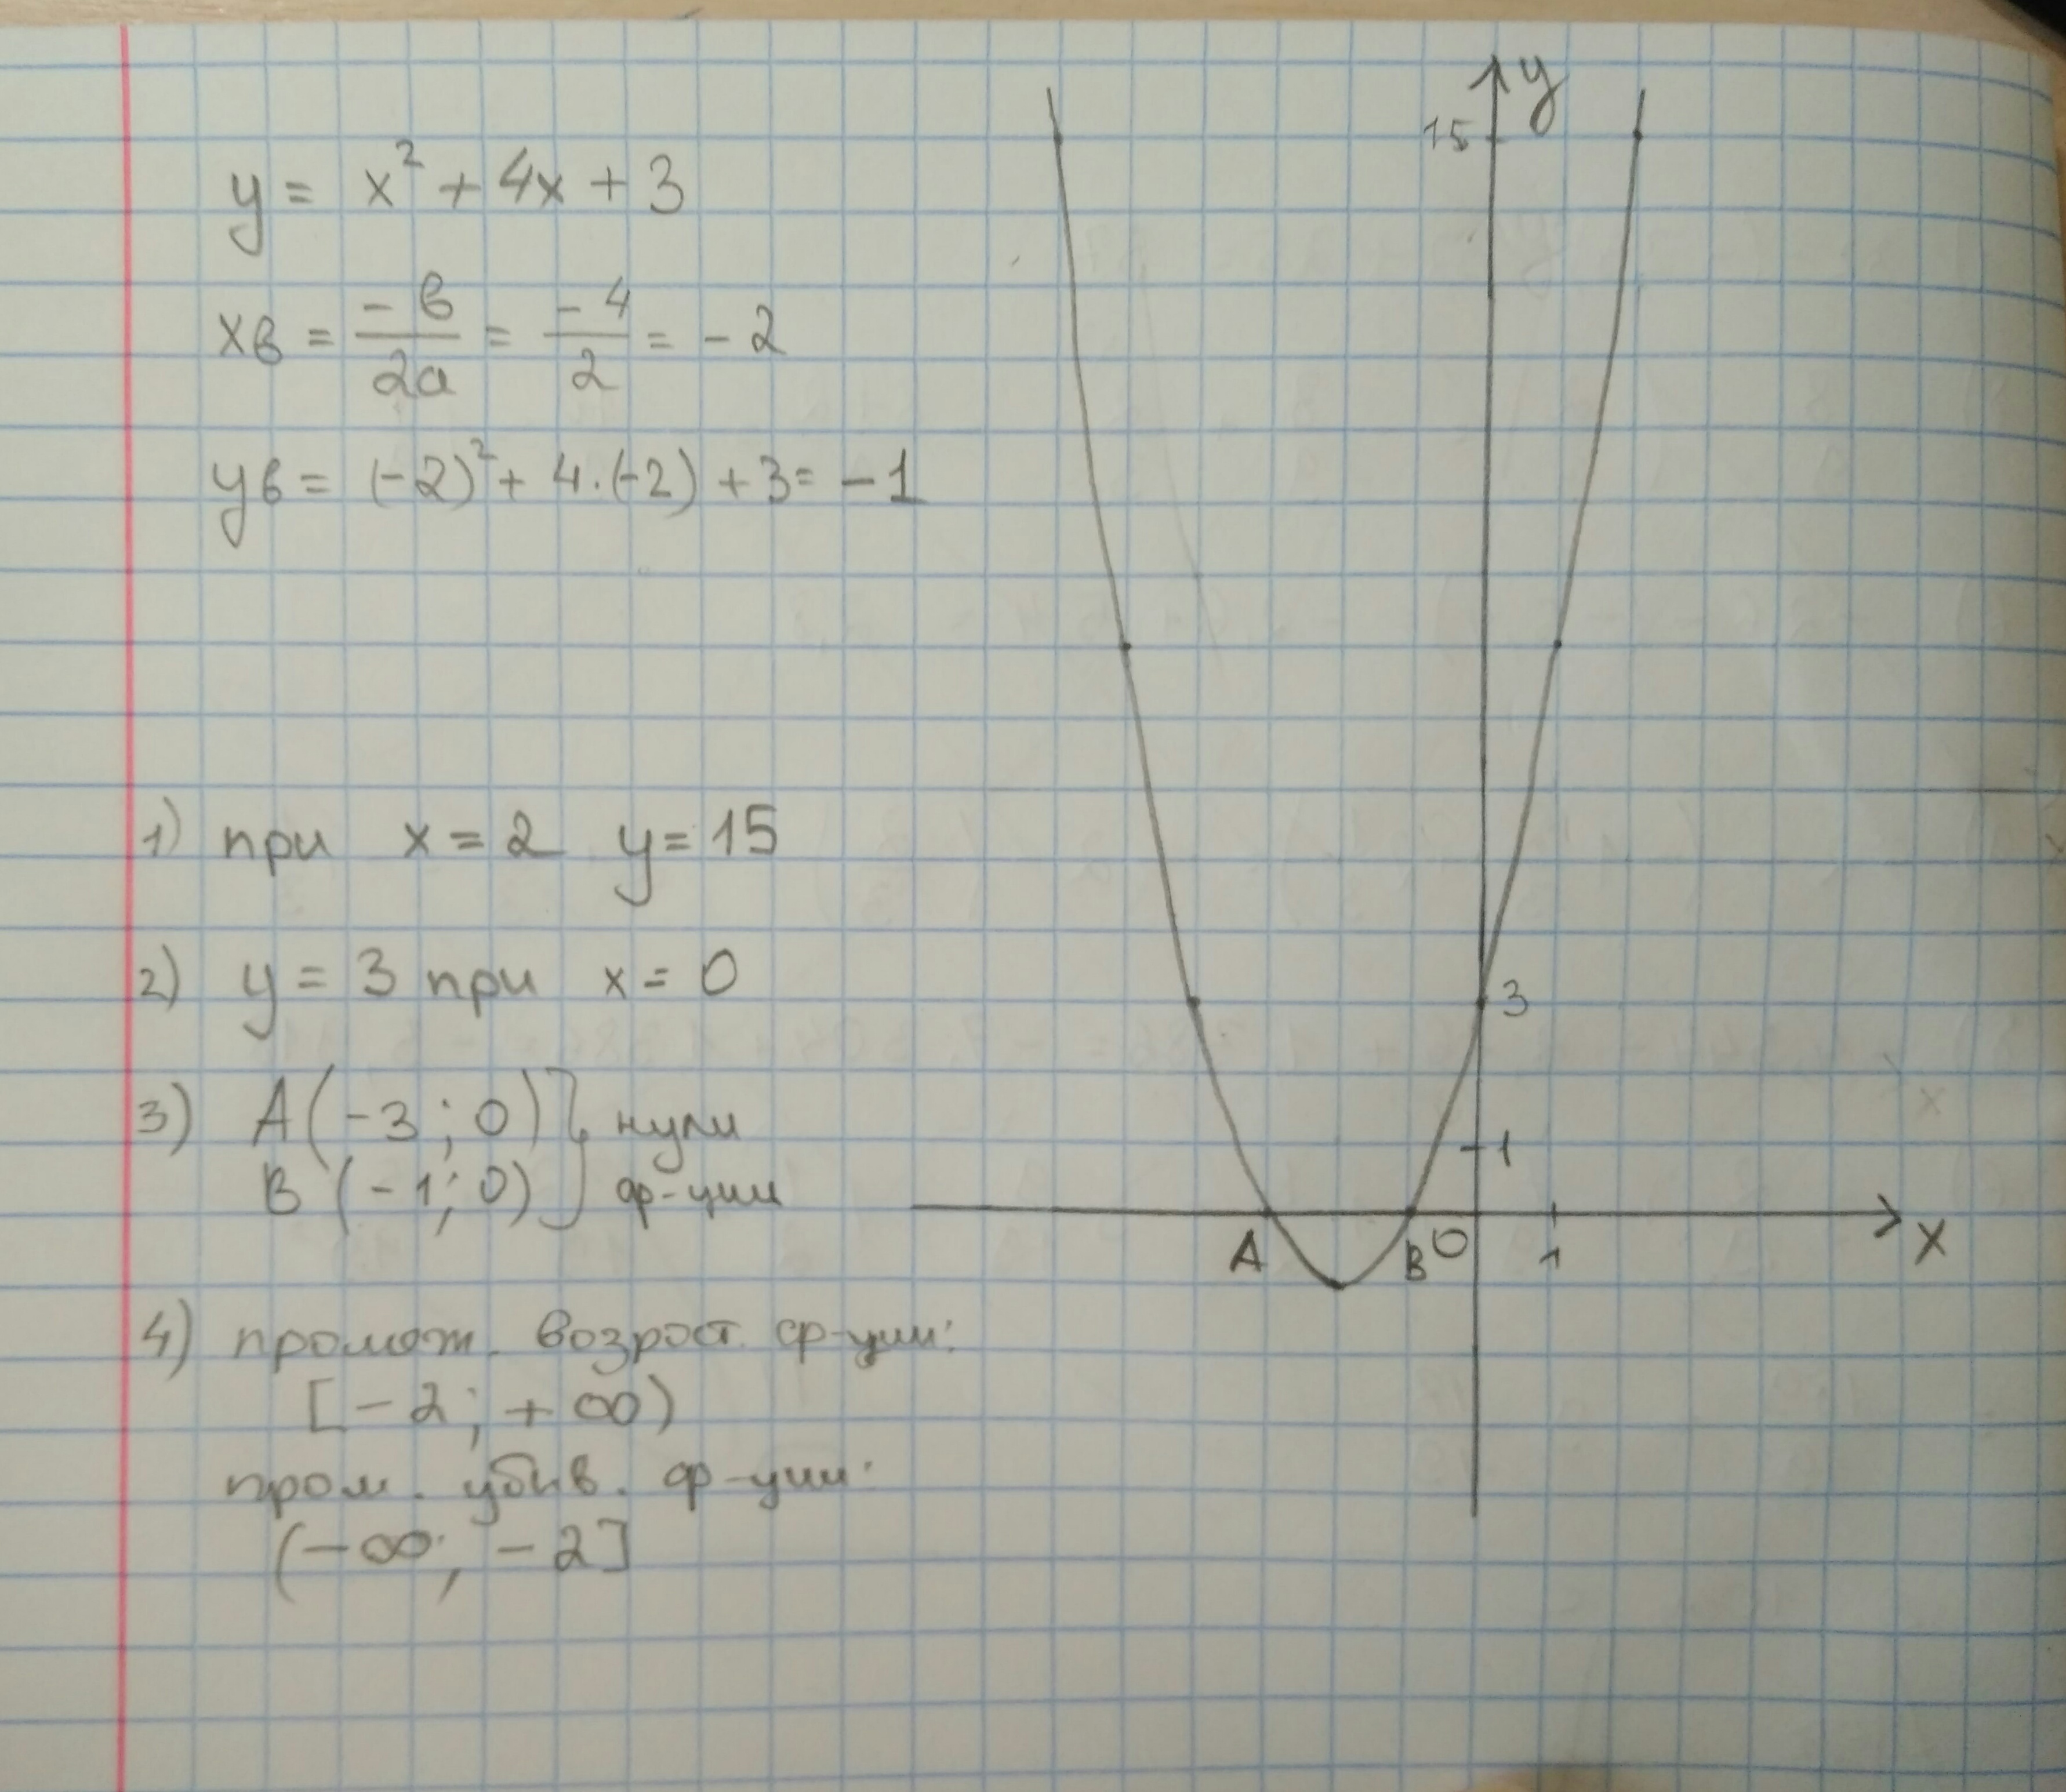 y = x² + 4x + 3
xв = -в/2a = -4/2 = -2
yв = (-2)² + 4·(-2) + 3 = -1
1) при x = 2 y = 15
2) y = 3 при x = 0
3) A(-3; 0) } нули
B(-1; 0) } ф-ции
4) промеж. возрост. ф-ции:
[-2; +∞)
пром. убыв. ф-ции:
(-∞; -2]
y
15
3
1
A
B
0
1
x